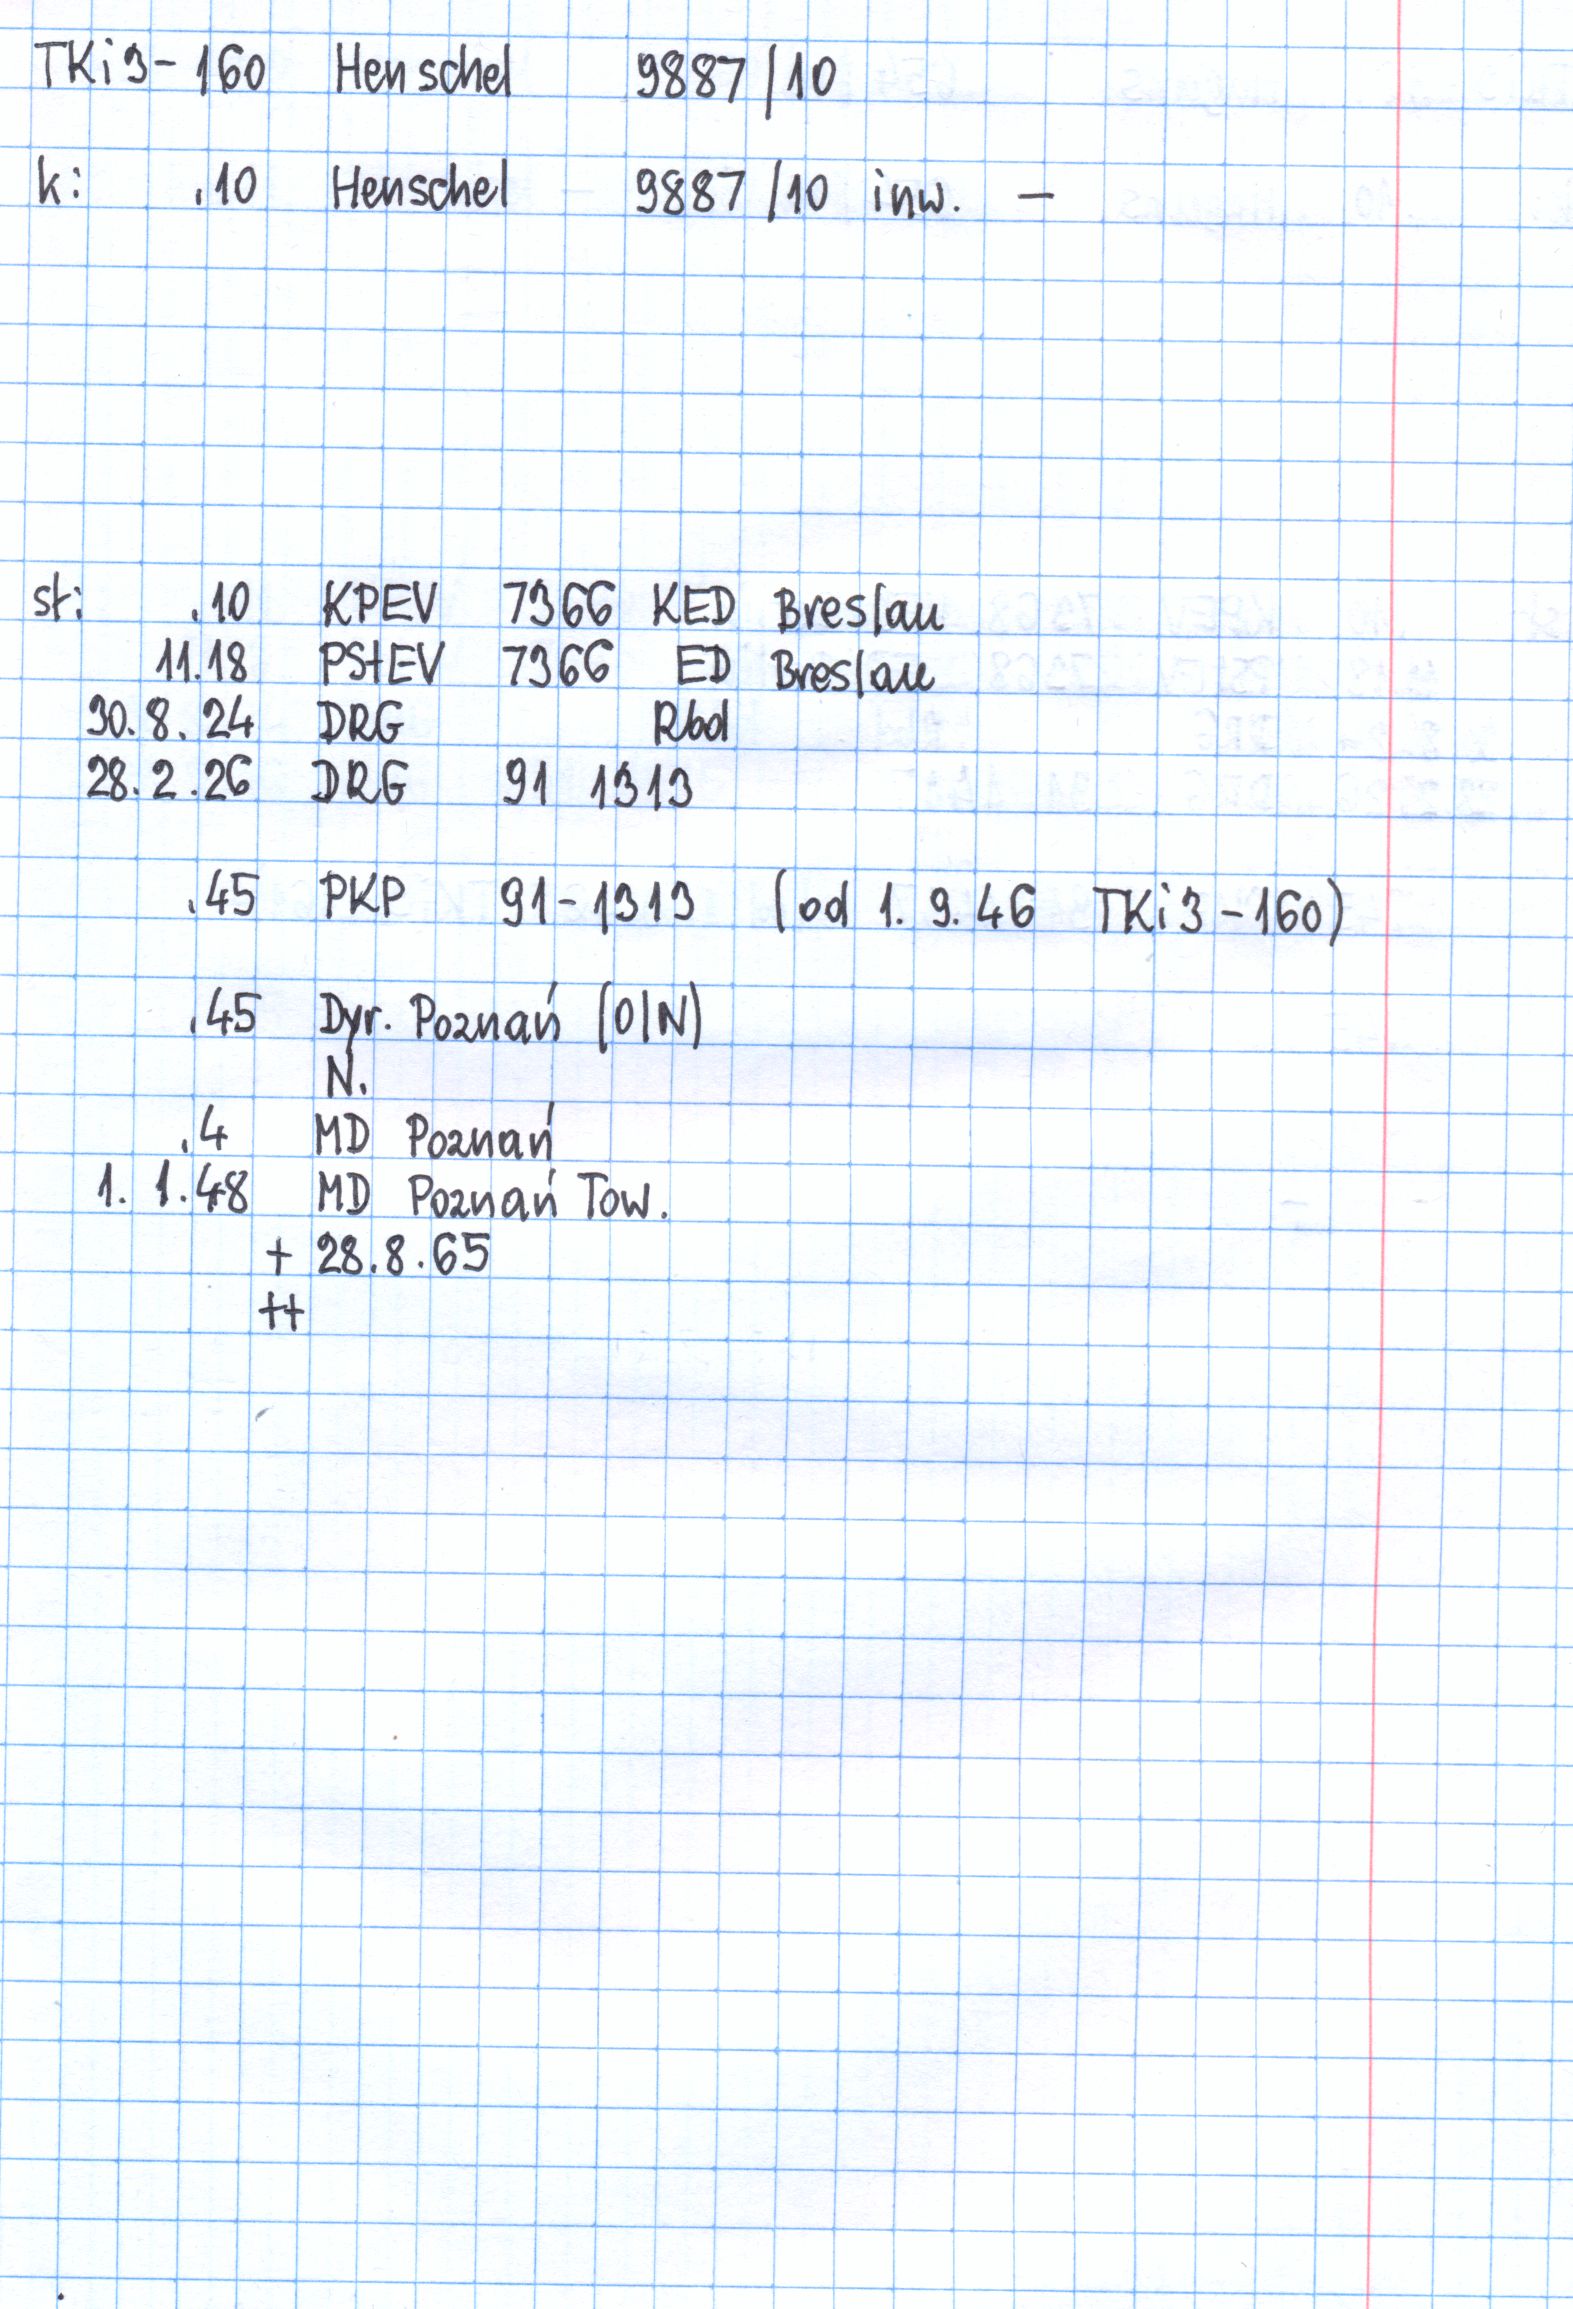 TKi3-160 Henschel 9887/10
k: .10 Henschel 9887/10 inw. -
st: .10 KPEV 7366 KED Breslau
11.18 PStEV 7366 ED Breslau
30.8.24 DRG Rbd
28.2.26 DRG 91 1313
.45 PKP 91-1313 (od 1.9.46 TKi3-160)
.45 Dyr. Poznań (OIN)
N.
.4 MD Poznań
1.1.48 MD Poznań Tow.
+ 28.8.65
++